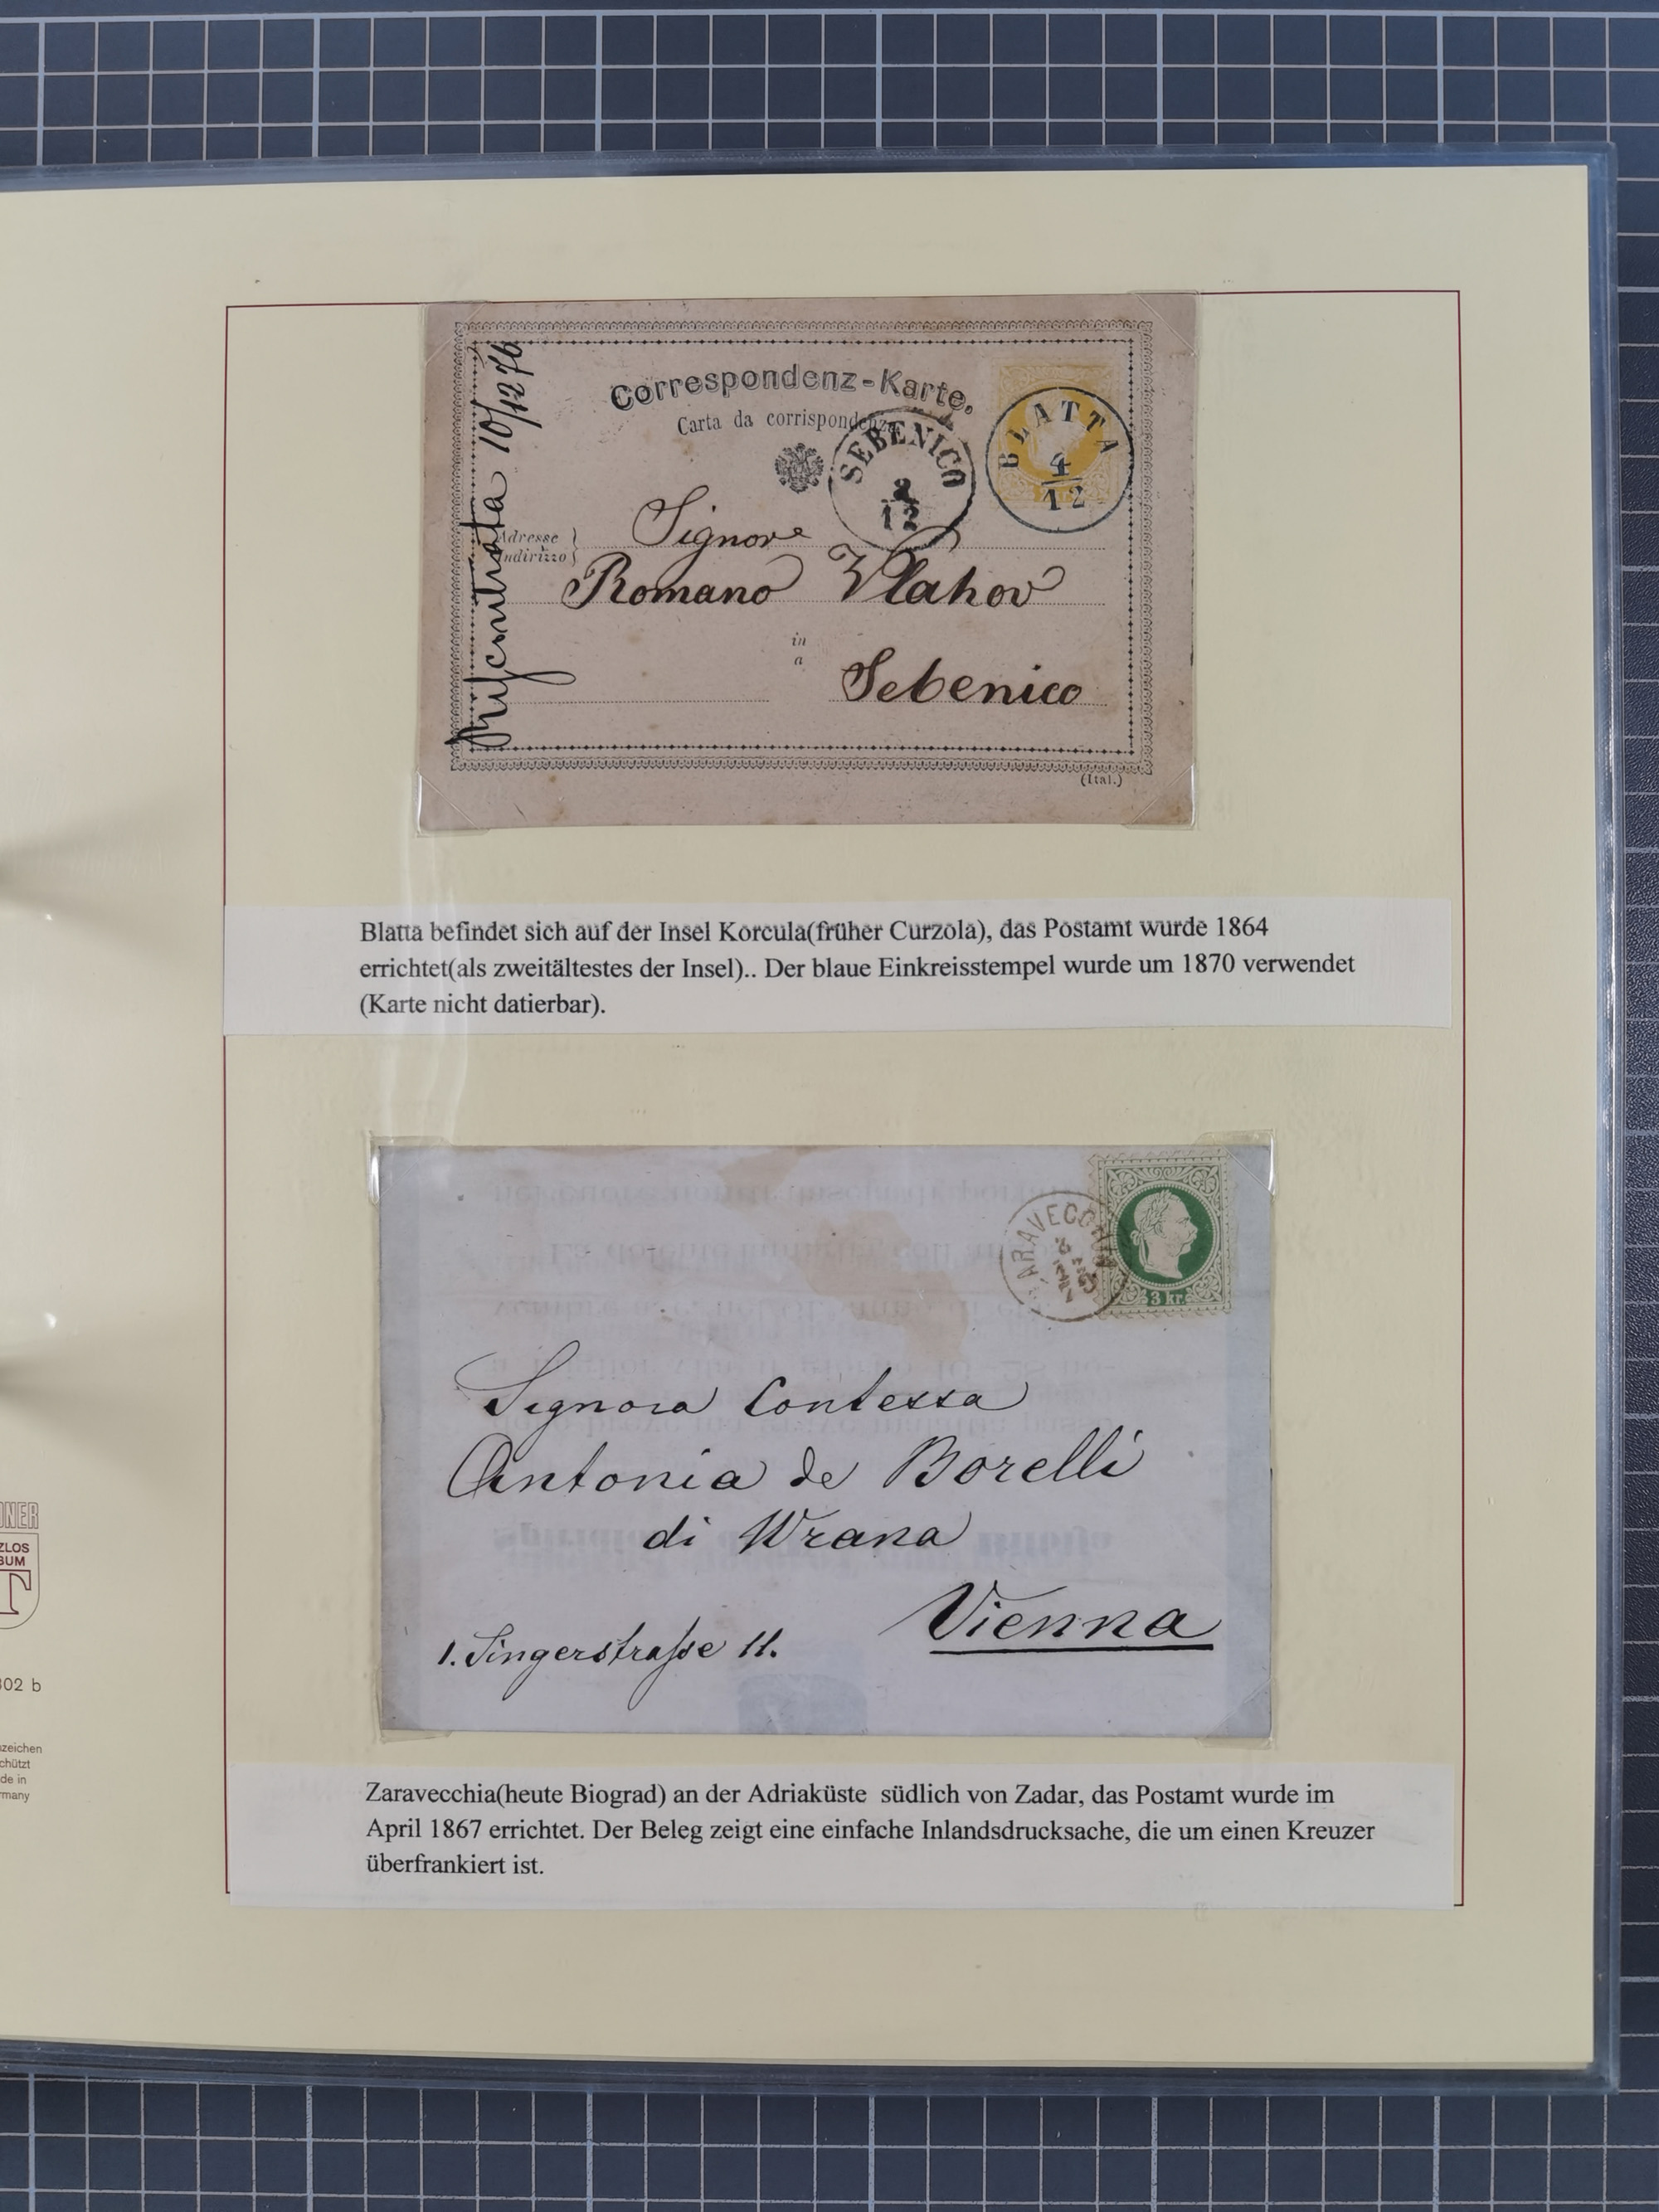 Correspondenz-Karte.
Carta da corrispondenza
SEBENICO
12
BLATTA
4
12
10/12 76
Adresse
Indirizzo
Signore
Romano Vlahov
in
a
Sebenico
(Ital.)
Blatta befindet sich auf der Insel Korcula(früher Curzola), das Postamt wurde 1864
errichtet(als zweitältestes der Insel).. Der blaue Einkreisstempel wurde um 1870 verwendet
(Karte nicht datierbar).
ZARAVECCHIA
3 kr.
Signora Contessa
Antonia de Borelli
di Wrana
Vienna
1. Singerstraſse 11.
Zaravecchia(heute Biograd) an der Adriaküste südlich von Zadar, das Postamt wurde im
April 1867 errichtet. Der Beleg zeigt eine einfache Inlandsdrucksache, die um einen Kreuzer
überfrankiert ist.
DNER
ZLOS
BUM
T
302 b
zeichen
chützt
de in
rmany